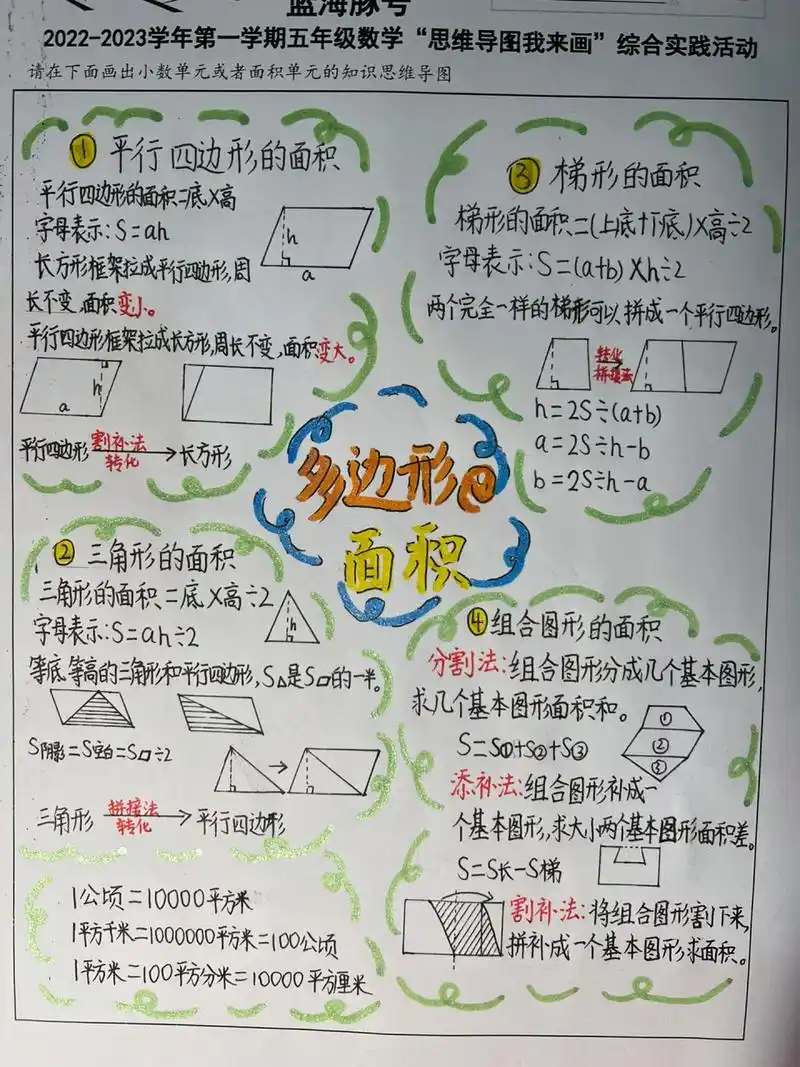 蓝海豚号
2022-2023学年第一学期五年级数学“思维导图我来画”综合实践活动
请在下面画出小数单元或者面积单元的知识思维导图
多边形的
面积
① 平行四边形的面积
平行四边形的面积=底×高
字母表示:S=ah
h
a
长方形框架拉成平行四边形,周
长不变,面积变小。
平行四边形框架拉成长方形,周长不变,面积变大。
h
a
平行四边形 割补法 转化 长方形
② 三角形的面积
三角形的面积=底×高÷2
字母表示:S=ah÷2
h
等底等高的三角形和平行四边形,S△是S▱的一半。
S阴影=S空白=S▱÷2
三角形 拼接法 转化 平行四边形
1公顷=10000平方米
1平方千米=1000000平方米=100公顷
1平方米=100平方分米=10000平方厘米
③ 梯形的面积
梯形的面积=(上底+下底)×高÷2
字母表示:S=(a+b)×h÷2
两个完全一样的梯形可以拼成一个平行四边形。
转化
拼接法
h=2S÷(a+b)
a=2S÷h-b
b=2S÷h-a
④ 组合图形的面积
分割法:组合图形分成几个基本图形,
求几个基本图形面积和。
①
S=S①+S②+S③
②
③
添补法:组合图形补成一
个基本图形,求大小两个基本图形面积差。
S=S长-S梯
割补法:将组合图形割下来,
拼补成一个基本图形求面积。